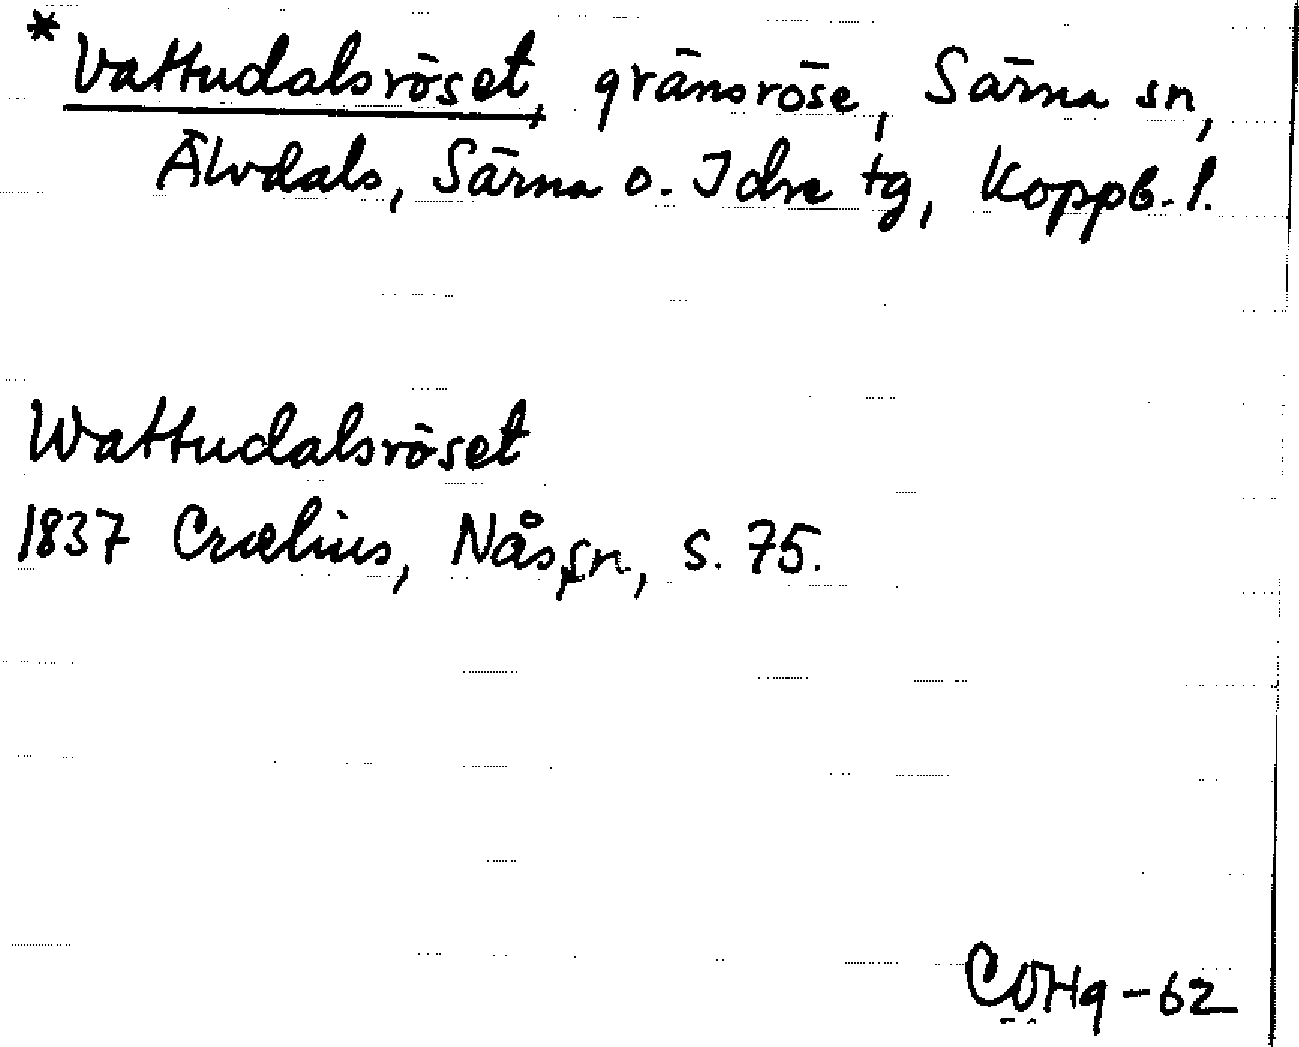 * Vattudalsröset, gränsröse, Särna sn,
Älvdals, Särna o. Idre tg, Koppb. l.
Wattudalsröset
1837 Crælius, Nås sn, s. 75.
CÖHg-62